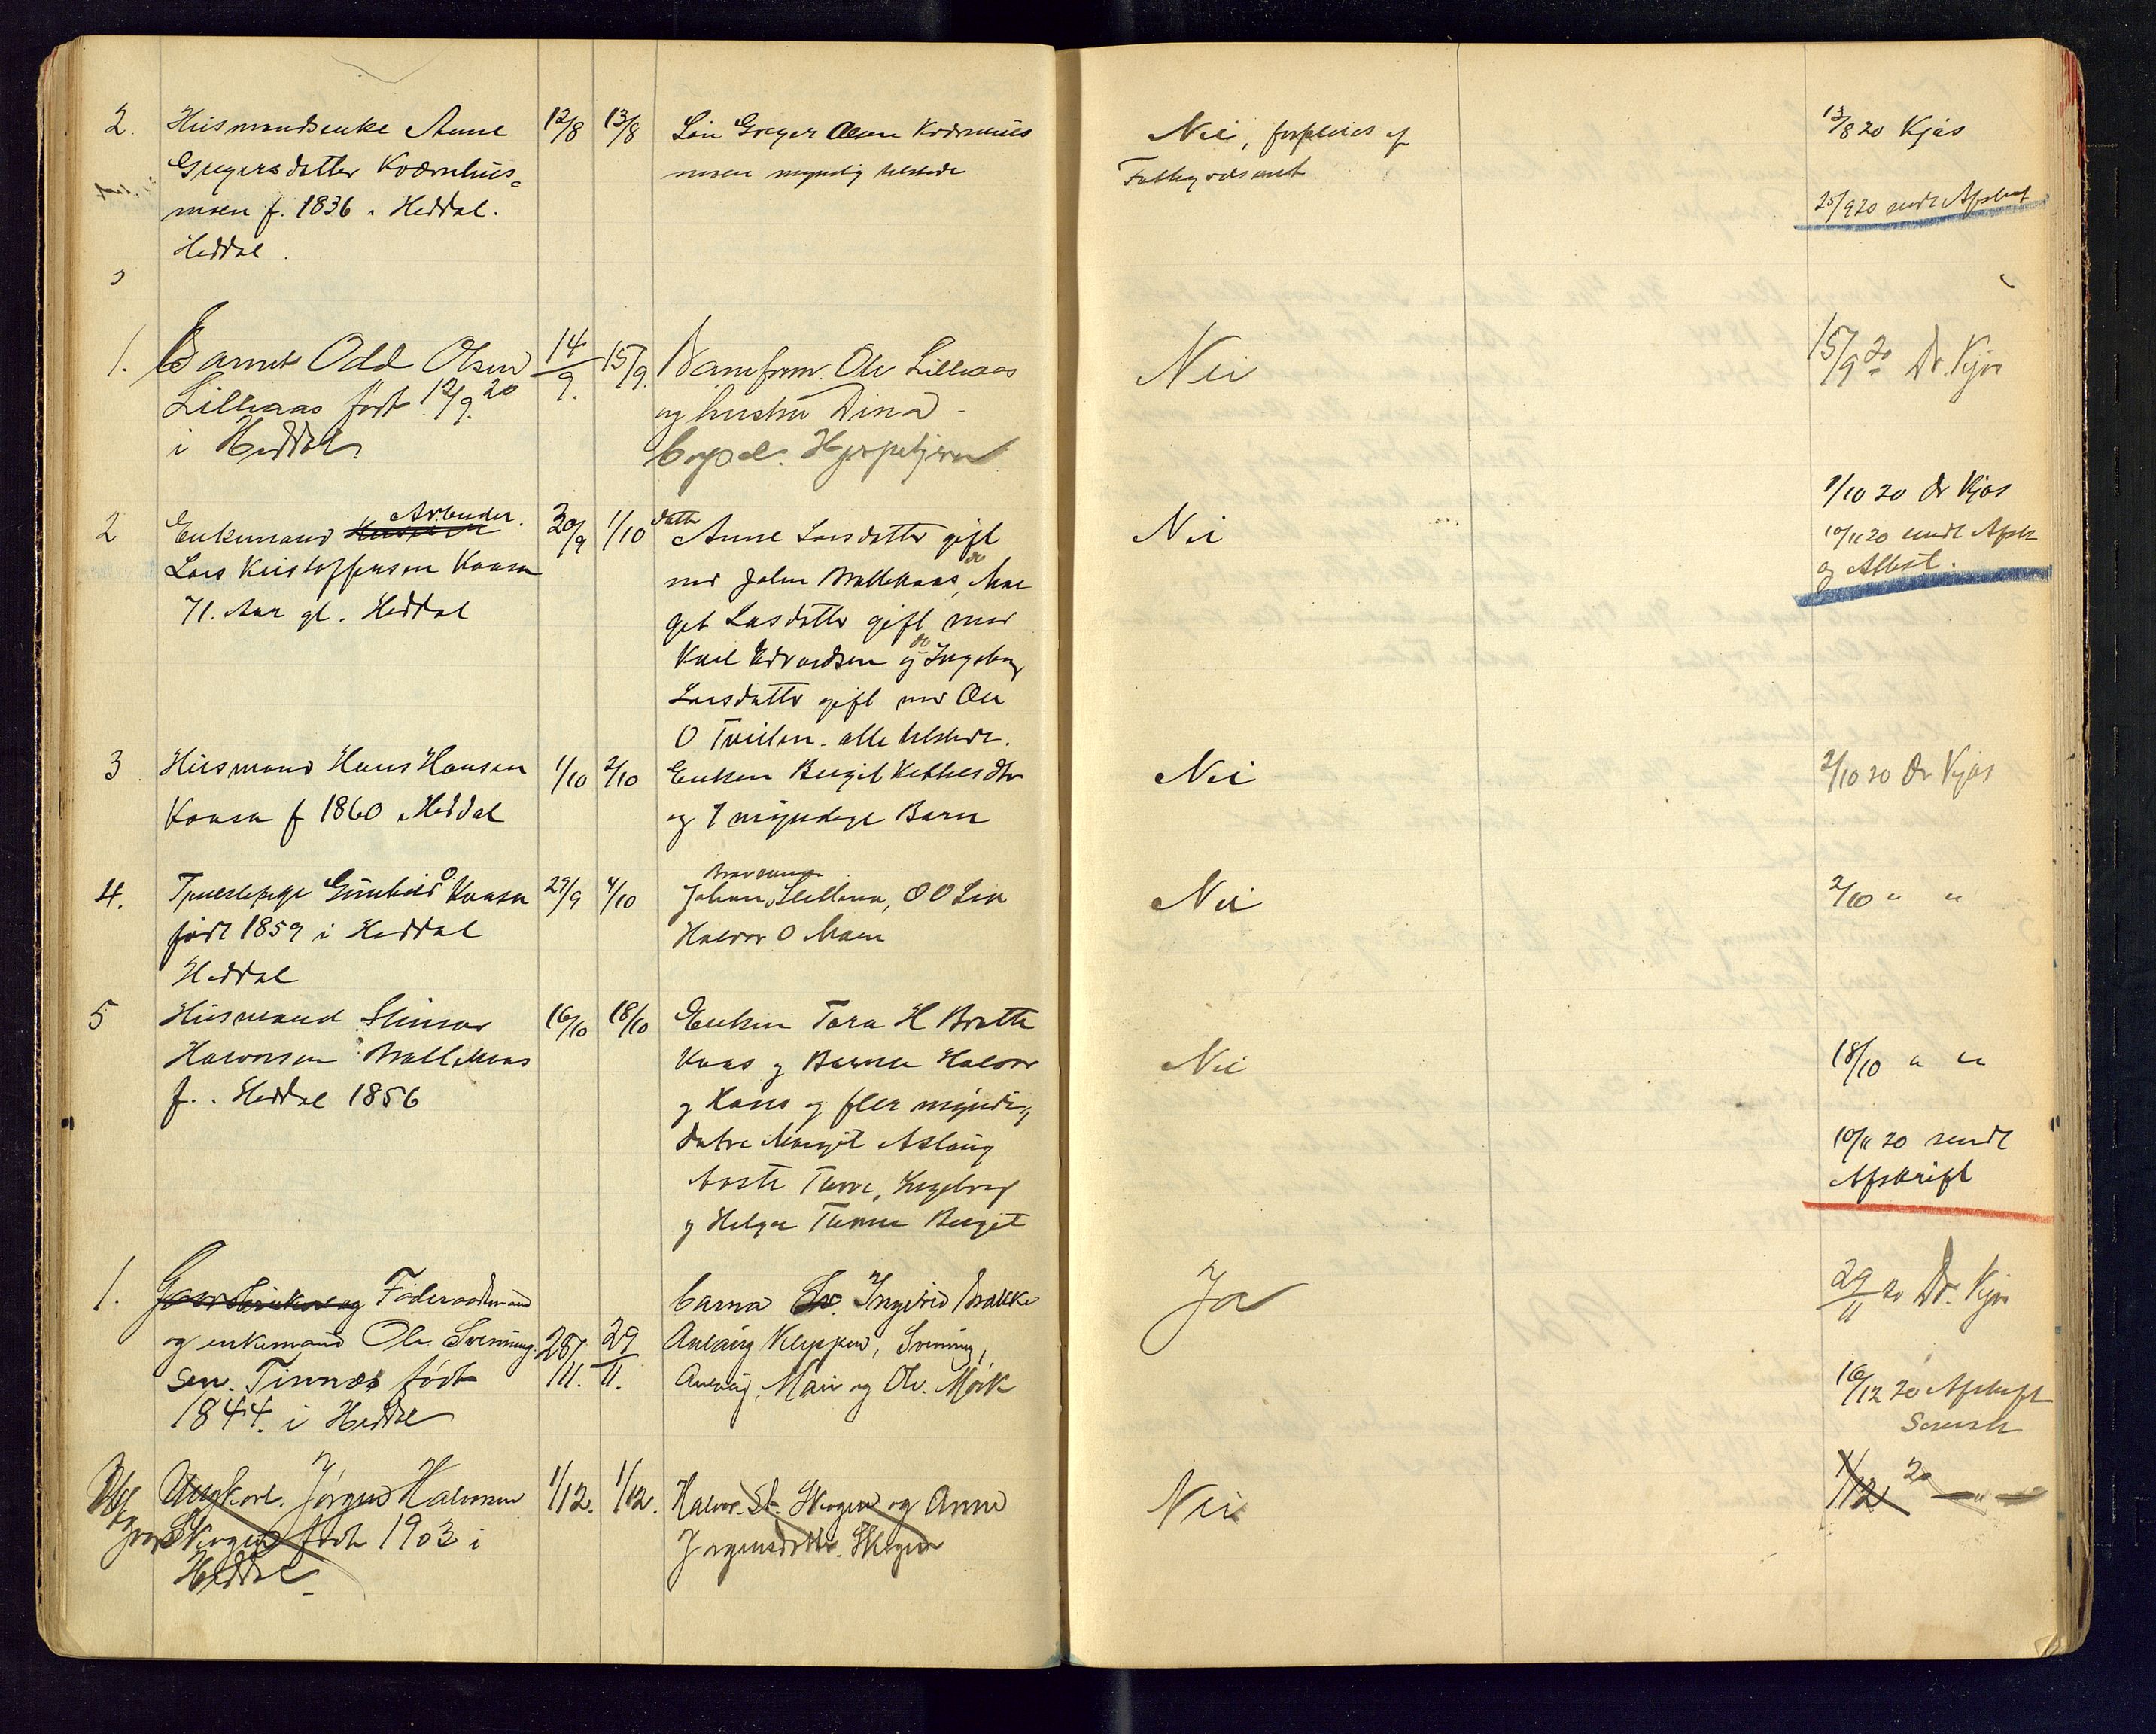 2. Husmandsenke Anne 12/8 13/8 Søn Greger Olsen Kvernhus Nei, forpleies af 13/8 20 Kjos
Gregersdatter Kvernhus= moen myndig tilstede Fattigvæsenet
moen f. 1836 i Heddal. 25/9 20 sendt Afskrift
Heddal.
1. Barnet Odd Olsen 14/9. 15/9. Ole Lillaas Nei 15/9 20 Dr. Kjos
Lillaas født 12/9. 20 og hustru Dina
i Heddal.
2 Enkemand Arbeider. 30/9 1/10 datter Anne Larsdatter gift Nei 1/10 20 Dr Kjos
Lars Kristoffersen Kaasa med Johan do Mar 10/11 20 sendt Afskr
71. Aar gl. Heddal git Larsdatter gift med og Attest.
Karl Edvardsen og do Ingeborg
Larsdatter gift med Ole
O Tveiten. alle tilstede.
3 Husmand Hans Hansen 1/10 2/10 Enken Birgit Nei 2/10 20 Dr Kjos
Kaasa f 1860 i Heddal og 7 myndige Barn
4. Gunhild O Kaasa 29/9 4/10 Johan O O Lia Nei 2/10 " "
født 1859 i Heddal Halvor O Moen
Heddal
5 Husmand Steinar 16/10 18/10 Enken Tara H Bratte Nei 18/10 " "
Halvorsen kaas og Barnene Halvor
f. i Heddal 1856 og Hans og flere myndig
døtre Margit Aslaug 10/11 20 sendt
Aaste Tone, Ingeborg Afskrift
og Helga Birgit
1. Føderaadsmand barna Ingebrid Bakke Ja 29/11 20 Dr. Kjos
og enkemand Ole Svenning 28/11. 29/11. Kleppen, Svenning,
sen. Tinnes født Mari og Ole. Mørk 16/12 20 Afskrift
1844. i Heddal Sorensk
Ungkarl. Jørgen Halvorsen 1/12. 1/12. Halvor. St. Skogen og Anne Nei 1/12 20 — " —
Skogen født 1903 i Jørgensdatter. Skogen
Heddal